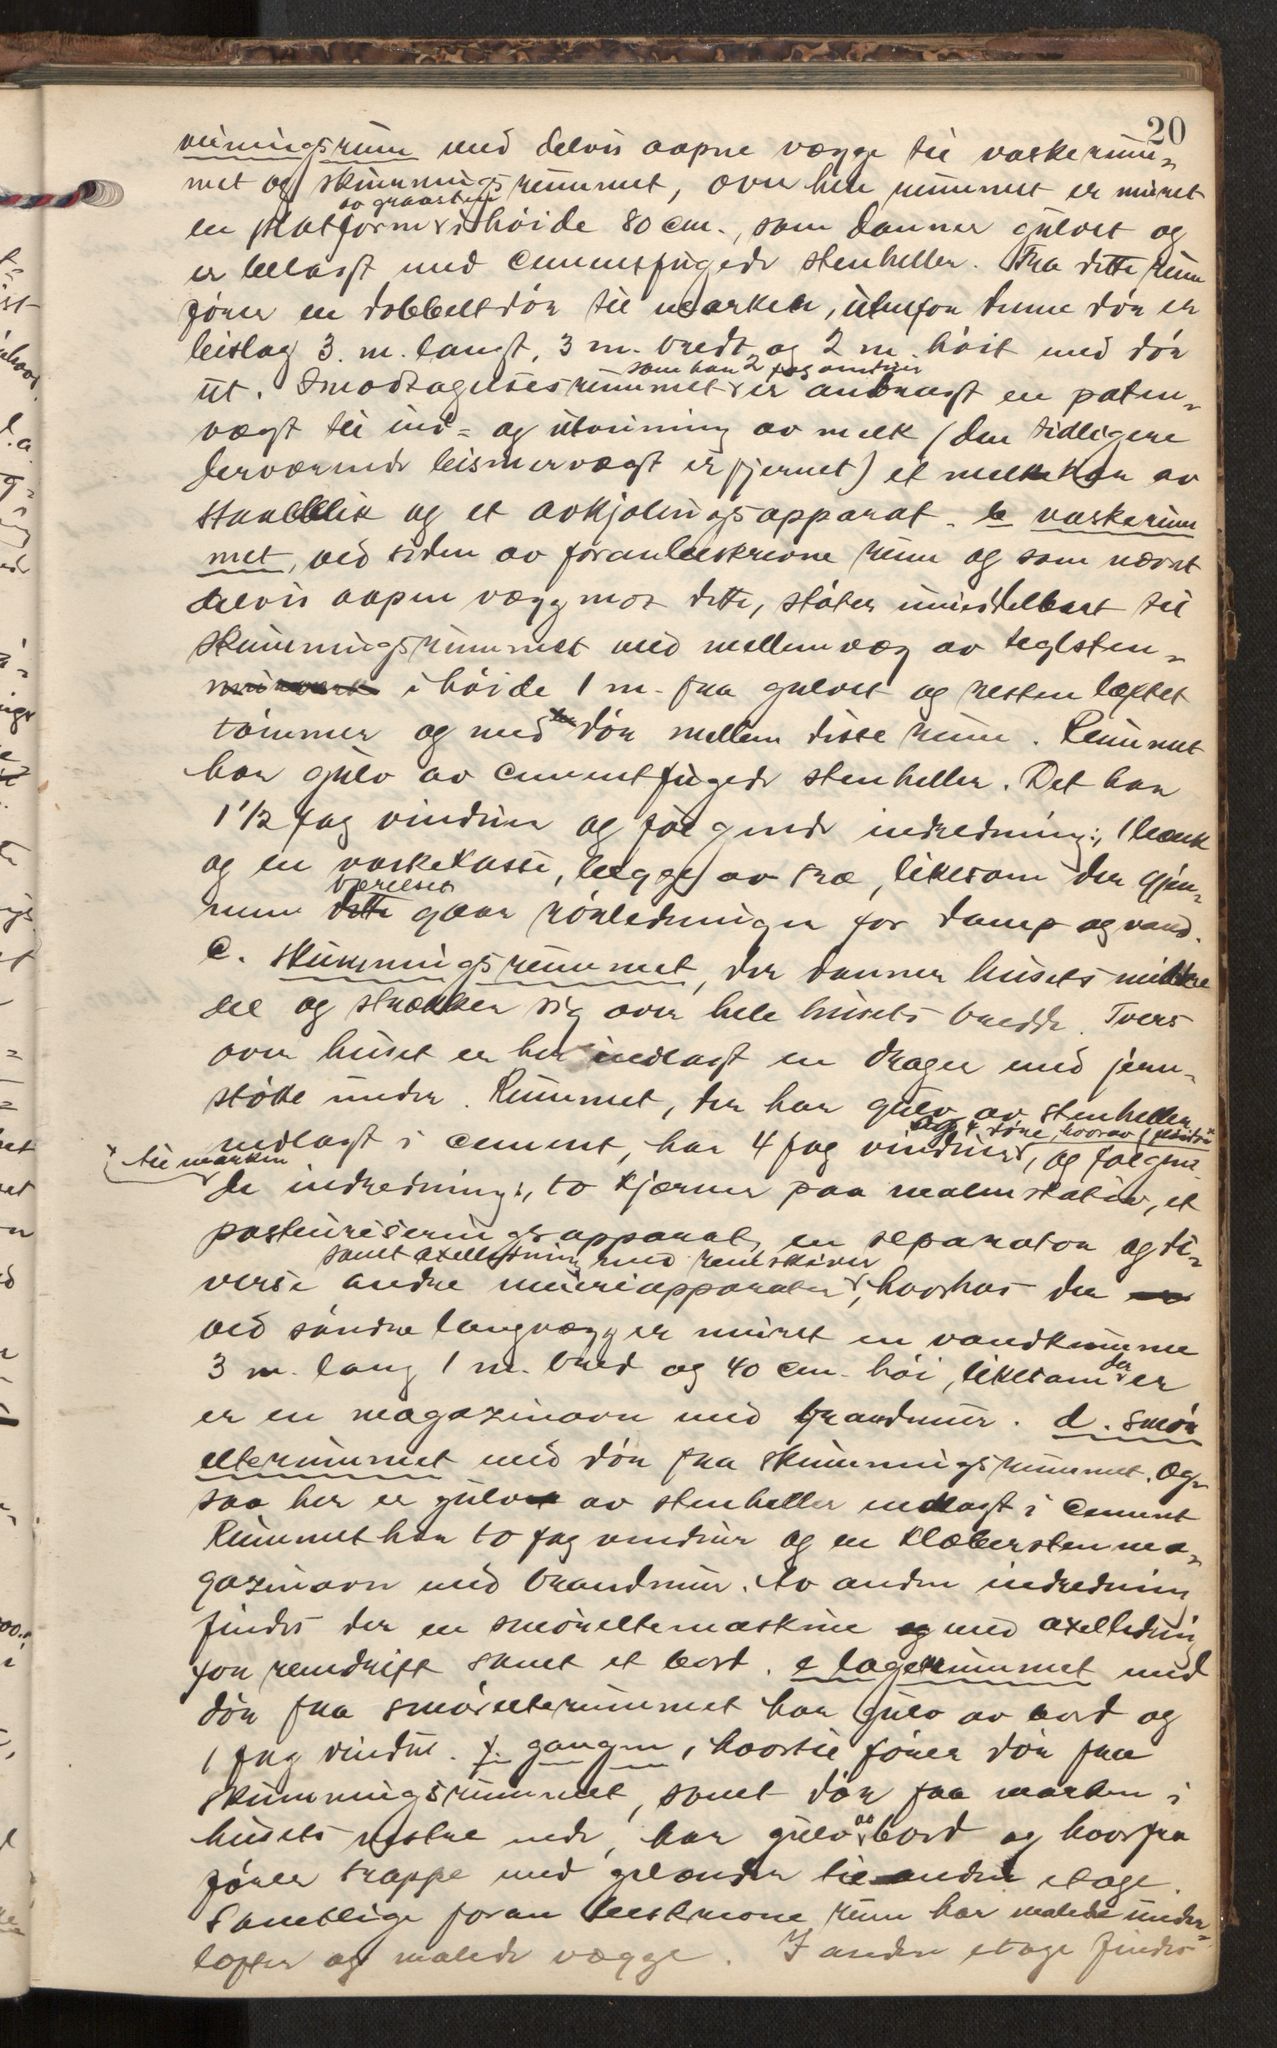 20
veiningsrum med delvis aapne vægge til vaskerum-
met og skummingsrummet, over hele rummet er muret
av graasten
en platform i høide 80 cm., som danner gulvet og
er belagt med cementfugede stenheller. Fra dette rum
fører en dobbelt dør til marken, utenfor denne dør er
bislag 3. m. langt, 3 m. bredt og 2 m. høit med dør
som har 2 fag vinduer
ut. I modtagelsesrummet er anbragt en paten-
vægt til ind- og utveining av melk (den tidligere
derværende bismervægt er fjernet) et melkekar av
staalblik og et avkjølingsapparat. b vaskerum
met, ved siden av foranbeskrevne rum og som nævnt
delvis aapen vægg mot dette, støter umiddelbart til
skummingsrummet med mellemvæg av teglsten-
murverk i høide 1 m. fra gulvet og resten laftet
tømmer og med dør mellem disse rum. Rummet
har gulv av cementfugede stenheller. Det har
1 1/2 fag vinduer og følgende indredning:, 1 bænk
og en vaskekasse, begge av træ, likesom der gjen-
værelset
nem dette gaar rørledninger for damp og vand.
C. Skummingsrummet, der danner husets midtre
del og strækker sig over hele husets bredde. Tvers
over huset er her indlagt en drager med jern-
støtte under. Rummet, der har gulv av stenheller
og 4 døre, hvorav 1 fløidør
nedlagt i cement, har 4 fag vinduer, og følgen-
til marken
de indredning:, to kjærner paa malmstativ, et
pasteuriseringsapparat, en separator og di-
samt axelledning med remskiver
verse andre meieriapparater, hvorhos der er
ved søndre langvægg er muret en vandkumme
3 m. lang 1 m. bred og 40 cm. høi, likesom der er
er en magazinovn med brandmur. d. Smør
elterummet med dør fra skummingsrummet. Og-
saa her er gulvet av stenheller nedlagt i cement
Rummet har to fag vinduer og en klæberstenma-
gazinovn med brandmur. Av anden indredning
findes der en smøreltemaskine og med axelledning
for remdrift samt et bord. e lagerrummet med
dør fra smørelterummet har gulv av bord og
1 fag vindu. f. gangen, hvortil fører dør fra
skummingsrummet, samt dør fra marken i
husets vestre ende, har gulv av bord og hvorfra
fører trappe med gelænder til anden etage.
Samtlige foran beskrevne rum har malede under-
lofter og malede vægge. I anden etage findes